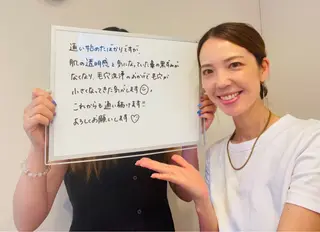 通い始めたばかりですが、
肌の透明感と気になっていた鼻の黒ずみが
なくなり、毛穴洗浄のおかげで毛穴が
小さくなってきた気がします☺。
これからも通い続けます!!
よろしくお願いします♡